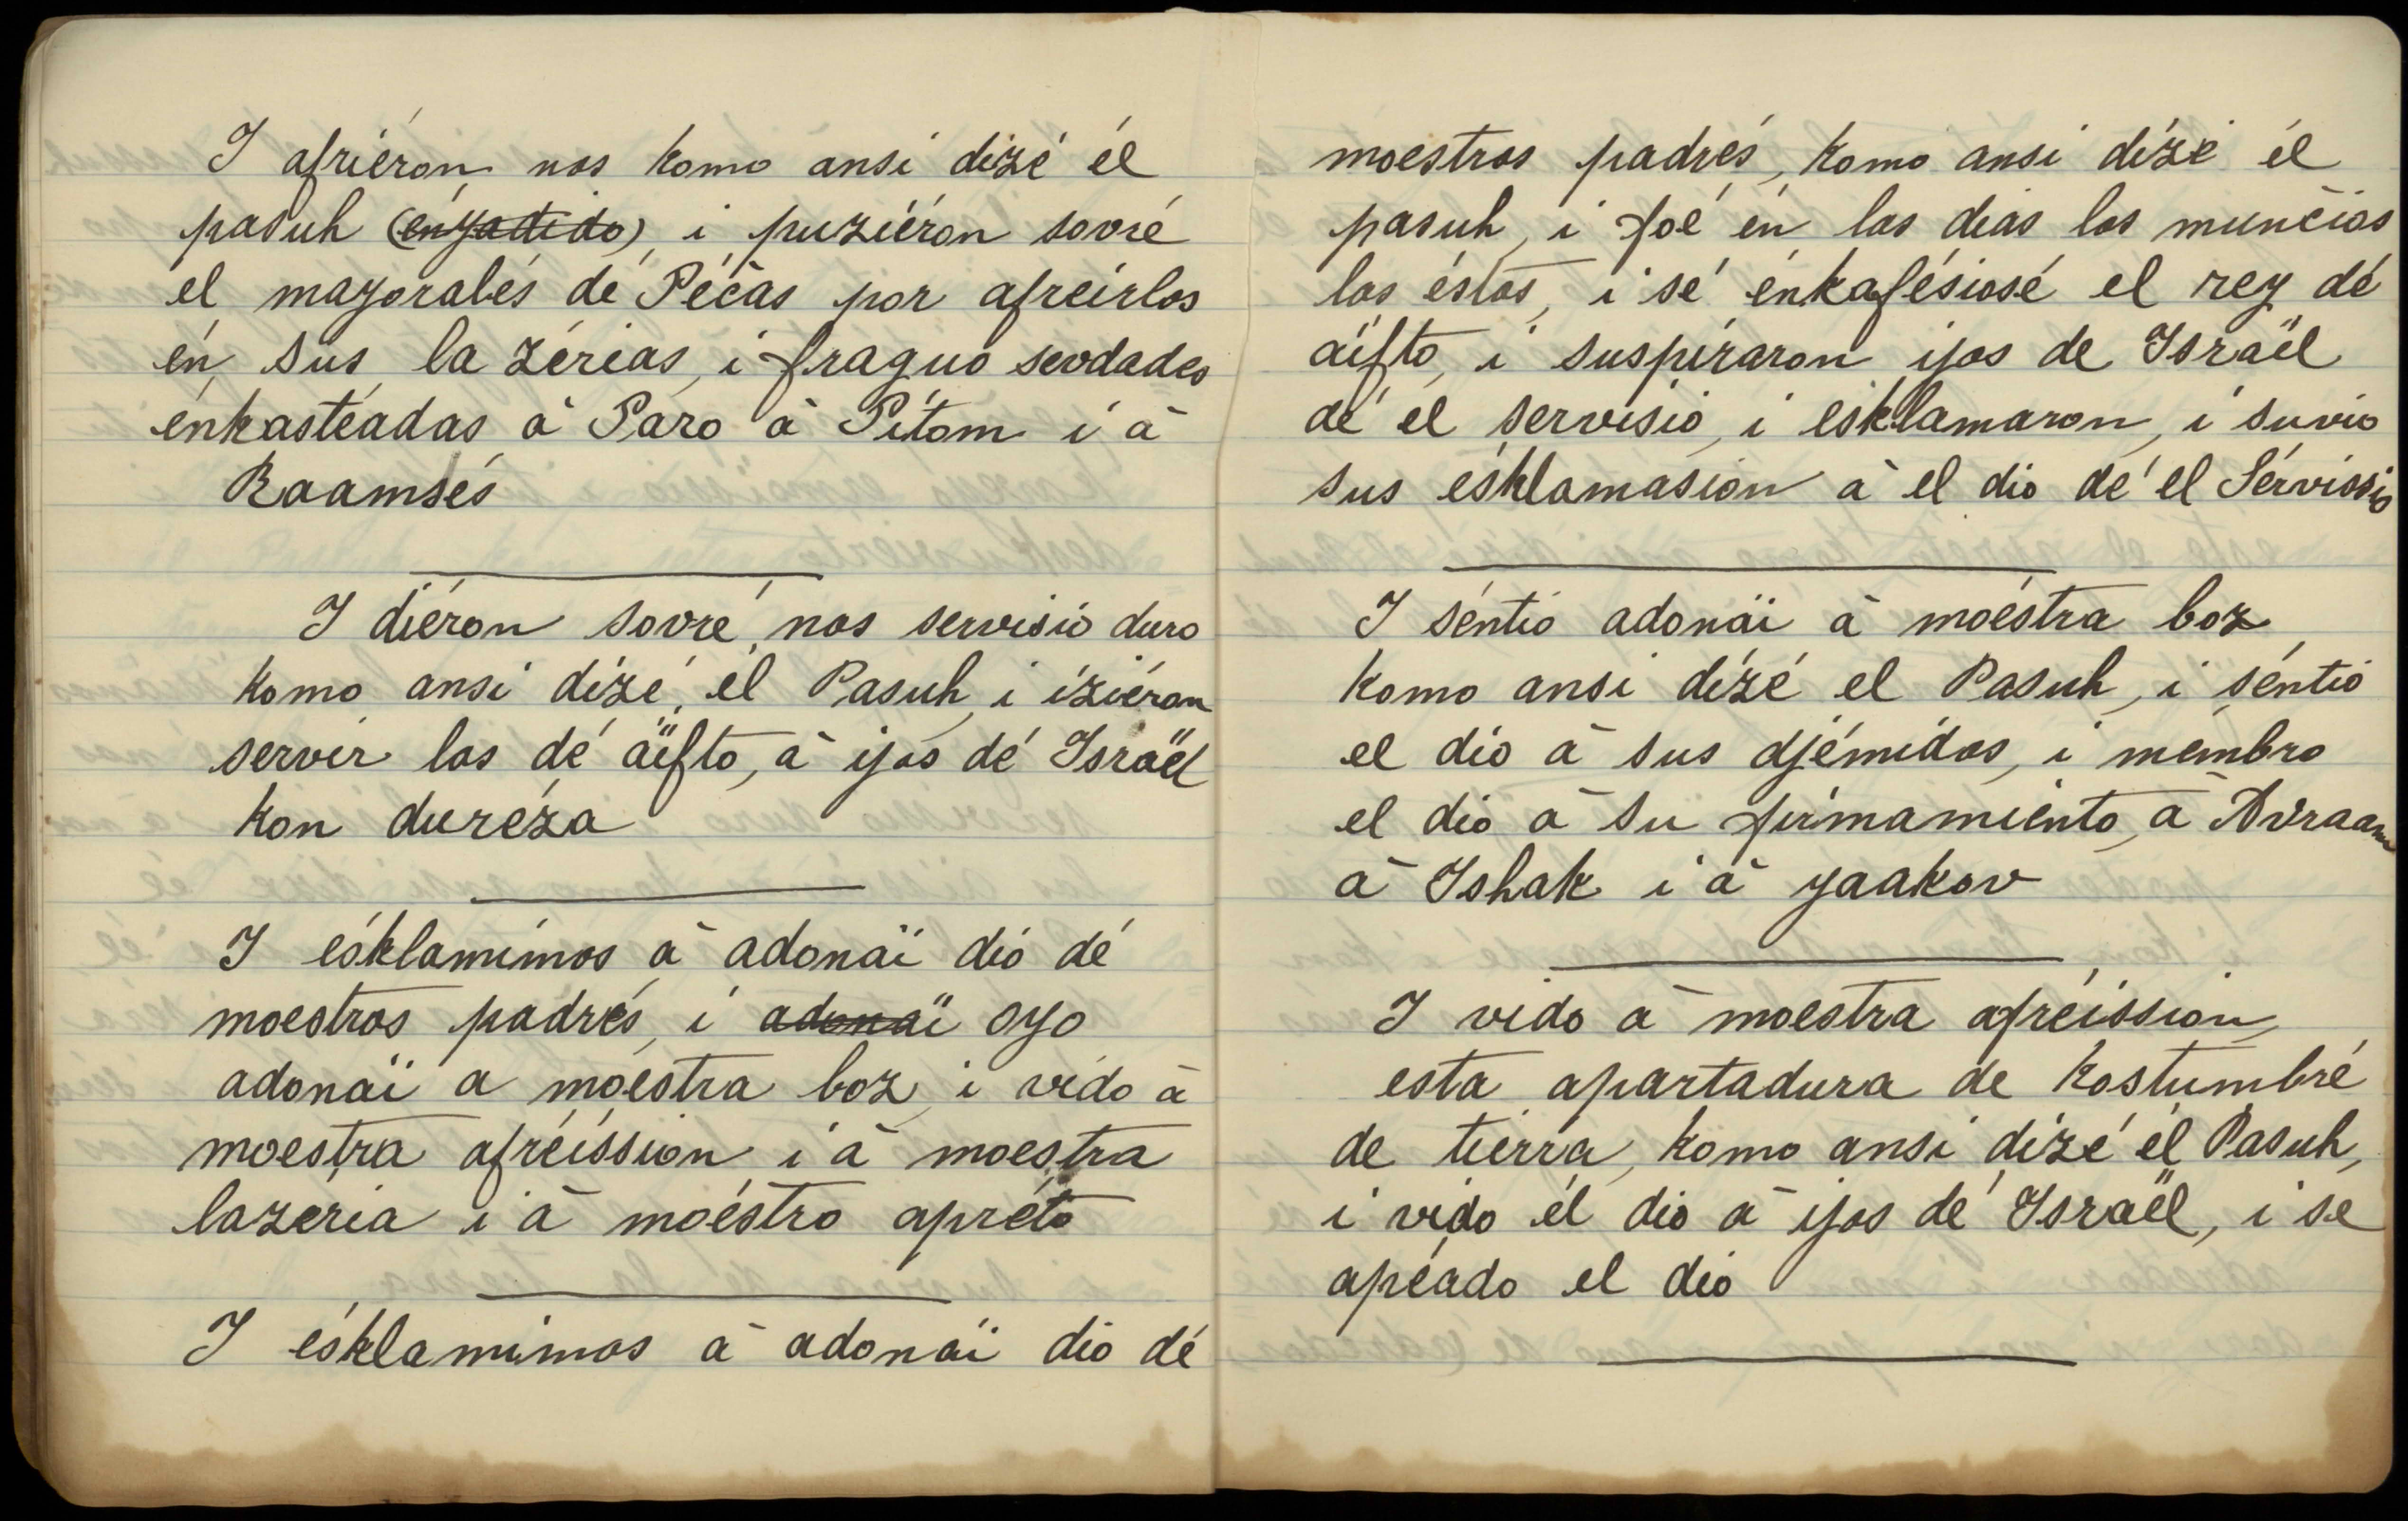 I afriéron nos komo ansi dizé él
pasuh (enyadido), i puziéron sovré
el mayoralés dé Péchas por afreirlos
én sus la zérias, i fraguo sevdades
énkastéadas à Paro à Pitom i à
Raamsés
I diéron sovré nos servisio duro
komo ansi dizé, él Pasuh, i iziéron
servir los dé äifto, à ijos dé Israël
kon duréza
I ésklamimos à adonäi dio dé
moestros padrés, i adonäi oyo
adonäi a moéstra boz, i vido à
moestra afréission i à moestra
lazeria i à moéstro apréto
I ésklamimos à adonäi dio dé
moestros padrés, komo ansi dizé él
pasuh, i foé én los dias los munchos
los éstos, i sé énkafésiosé el rey dé
äifto, i suspiraron ijos de Israël
dé el servisio, i esklamaron, i suvio
sus ésklamasion à el dio dé el Sérvissio
I séntio adonäi à moéstra boz
komo ansi dizé el Pasuh, i séntio
el dio à sus djémidos, i membro
el dio à su firmamiento, à Avraam
à Ishak i à yaakov
I vido à moestra afréission,
esta apartadura de kostumbré
de tierra, komo ansi dizé él Pasuh,
i vido él dio à ijos dé Israël, i se
apéado el dio